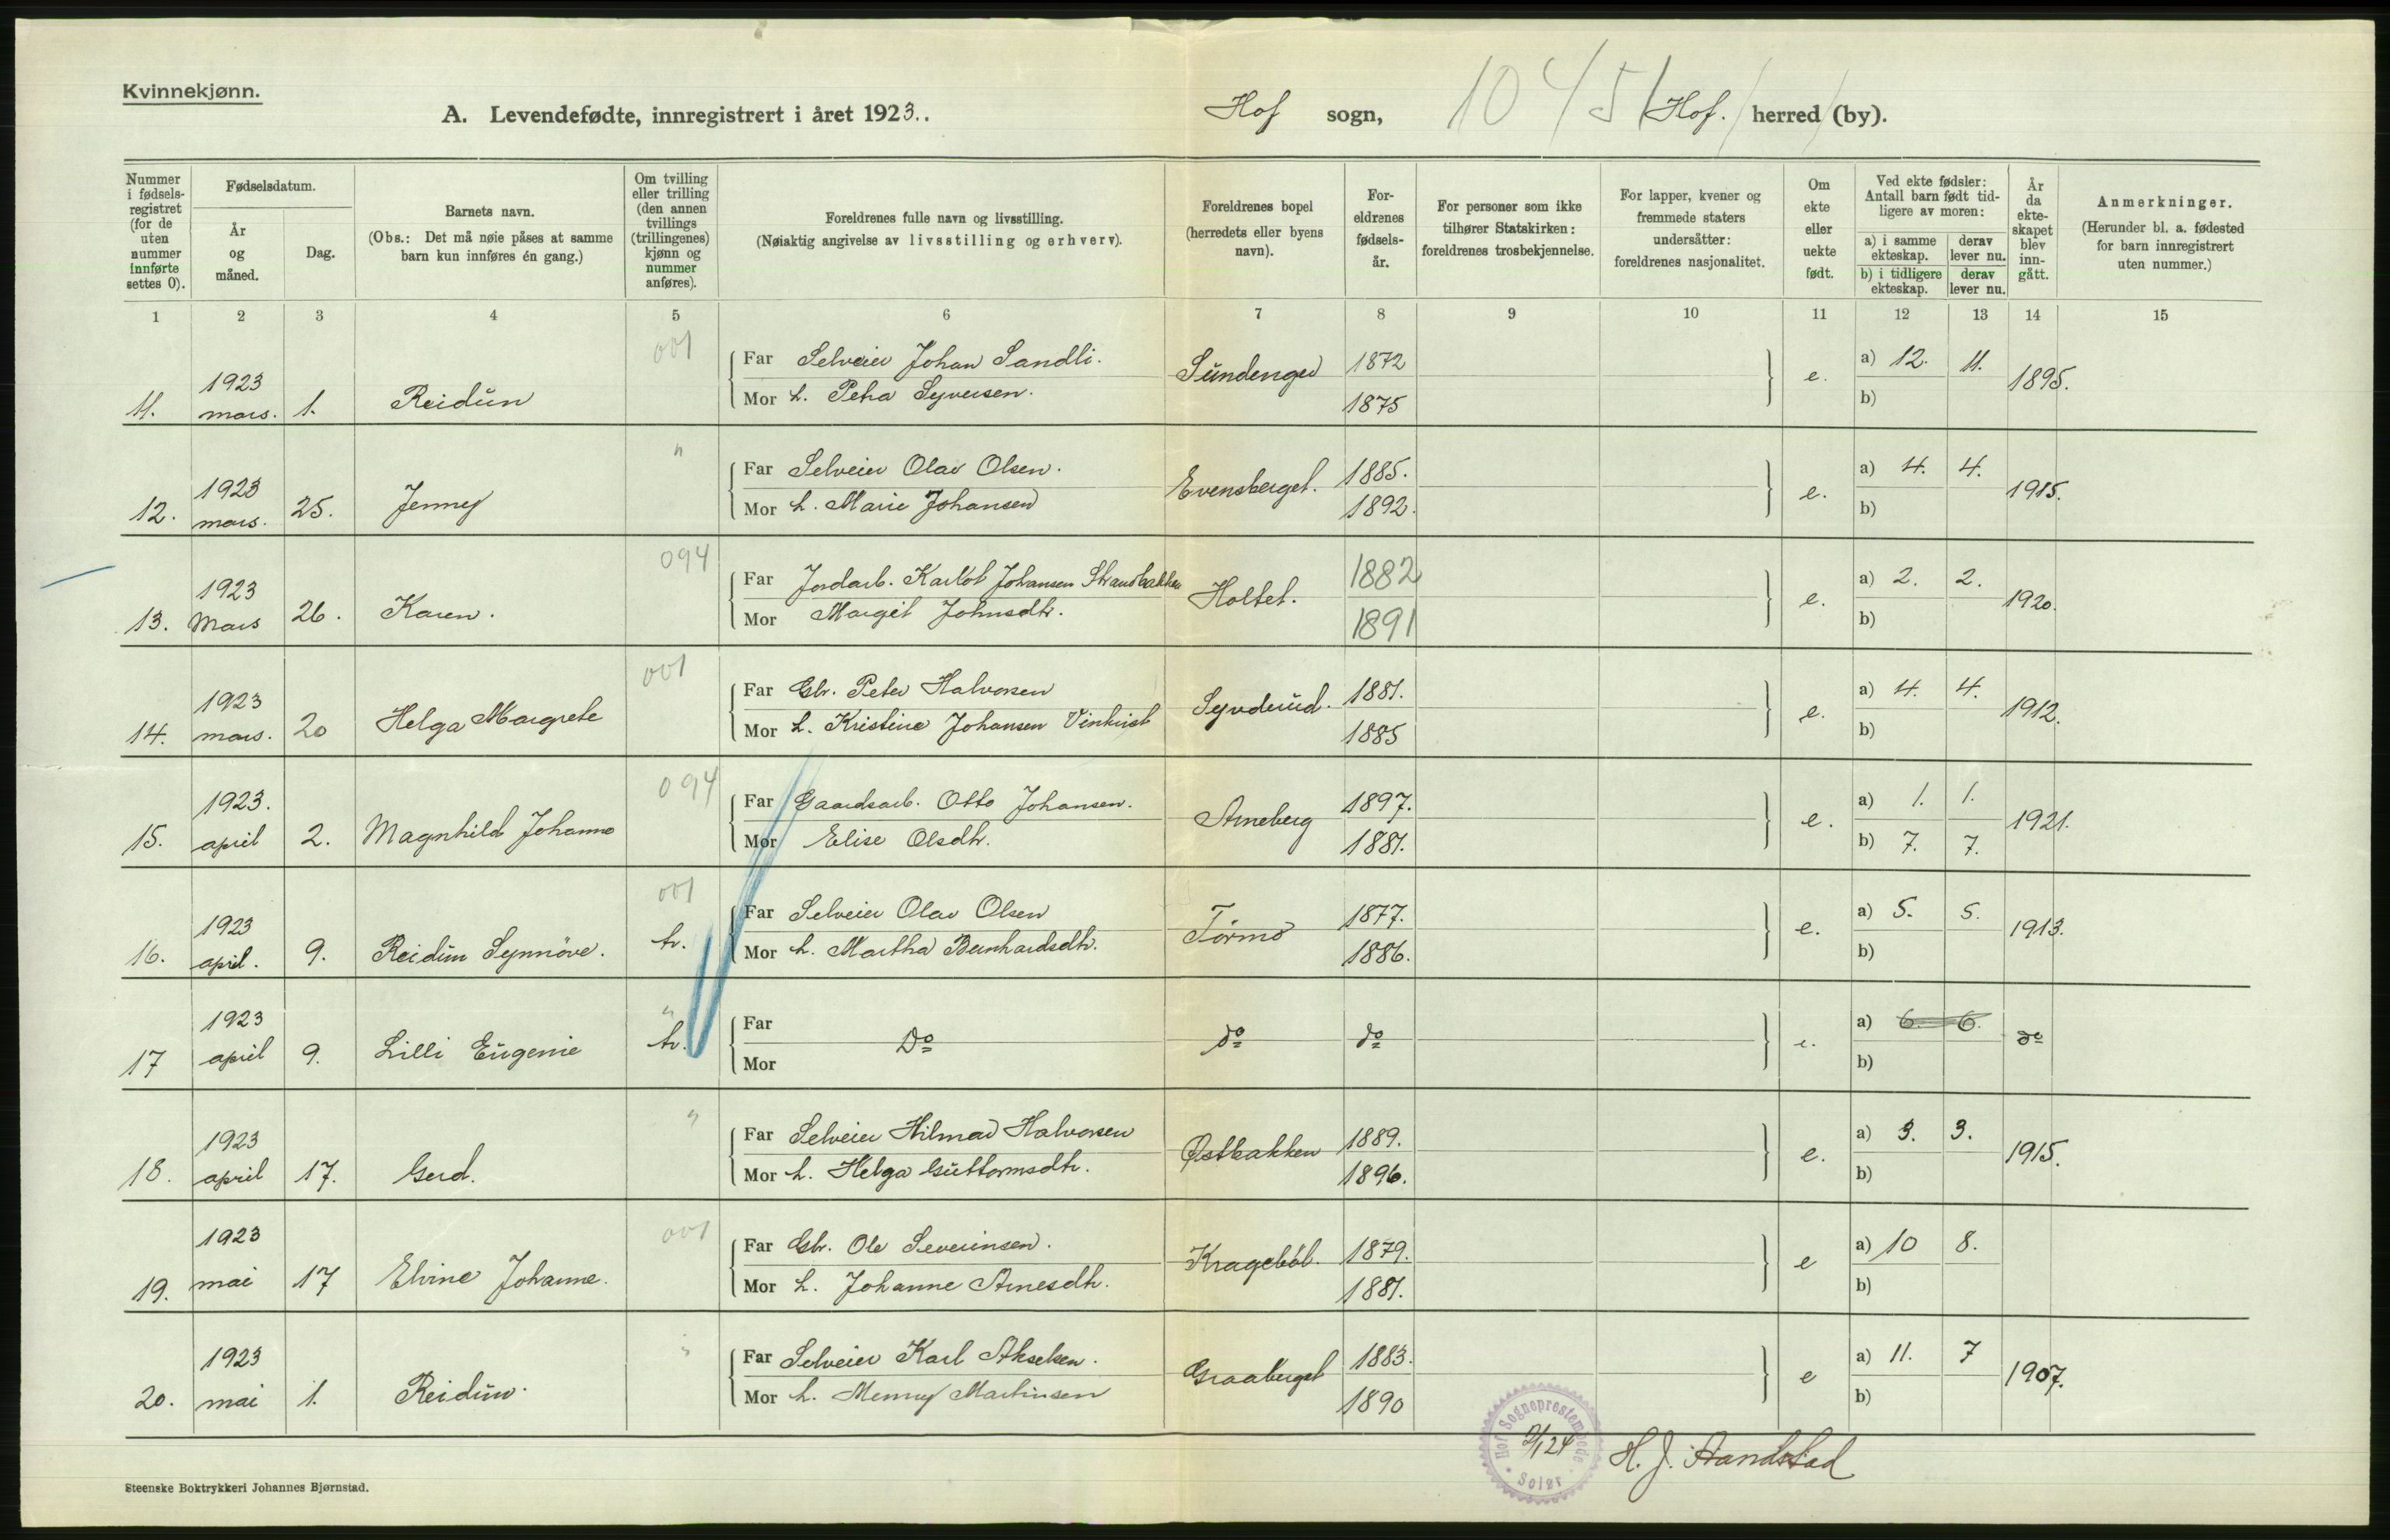 Kvinnekjønn.
A. Levendefødte, innregistrert i året 1923..
Hof sogn, 1045 Hof. herred (by).
Nummer i fødsels-registret (for de uten nummer innførte settes 0).
Fødselsdatum.
År og måned.
Dag.
Barnets navn.
(Obs.: Det må nøie påses at samme barn kun innføres én gang.)
Om tvilling eller trilling (den annen tvillings (trillingenes) kjønn og nummer anføres).
Foreldrenes fulle navn og livsstilling.
(Nøiaktig angivelse av livsstilling og erhverv).
Foreldrenes bopel (herredets eller byens navn).
For-eldrenes fødsels-år.
For personer som ikke tilhører Statskirken: foreldrenes trosbekjennelse.
For lapper, kvener og fremmede staters undersåtter: foreldrenes nasjonalitet.
Om ekte eller uekte født.
Ved ekte fødsler: Antall barn født tid-ligere av moren:
a) i samme ekteskap. derav lever nu.
b) i tidligere ekteskap. derav lever nu.
År da ekte-skapet blev inn-gått.
Anmerkninger.
(Herunder bl. a. fødested for barn innregistrert uten nummer.)
1 2 3 4 5 6 7 8 9 10 11 12 13 14 15
001
11. 1923 mars. 1. Reidun
Far Selveier Johan Sandli. 1872 a) 12. 11.
Mor h. Petra Syversen. 1875 b)
Sundenget e. 1895.
"
12. 1923 mars. 25. Jenny
Far Selveier Olav Olsen. 1885. a) 4. 4.
Mor h. Marie Johansen 1892. b)
Evensberget. e. 1915.
094
13. 1923 Mars 26. Karen.
Far Jordarb. Karlot Johansen Strandbakken 1882 a) 2. 2.
Mor Margit Johnsdtr. 1891 b)
Holtet. e. 1920.
001
14. 1923 mars. 20 Helga Margrete
Far Gbr. Peter Halvorsen 1881. a) 4. 4.
Mor h. Kristine Johansen Vinkvist 1885 b)
Synderud. e. 1912.
094
15. 1923. april 2. Magnhild Johanne
Far Gaardsarb. Otto Johansen. 1897. a) 1. 1.
Mor Elise Olsdtr. 1881. b) 7. 7.
Arneberg e. 1921.
001
16. 1923 april. 9. Reidun Synnöve. tv.
Far Selveier Olav Olsen 1877. a) 5. 5.
Mor h. Martha Bernhardsdtr. 1886. b)
Tørmo e. 1913.
"
17 1923 april 9. Lilli Eugenie tv.
Far a) 6. 6.
Mor b)
Do do do e. do
"
18. 1923 april 17. Gerd.
Far Selveier Hilmar Halvorsen 1889. a) 3. 3.
Mor h. Helga Guttormsdtr. 1896. b)
Østbakken e. 1915.
001
19. 1923 mai 17 Elvine Johanne.
Far Gbr. Ole Severinsen. 1879. a) 10 8.
Mor h. Johanne Arnesdtr. 1881. b)
Kragebøl. e
"
20. 1923 mai 1. Reidun.
Far Selveier Karl Akselsen. 1883. a) 11. 7
Mor h. Menny Martinsen 1890 b)
Graaberget e 1907.
Hof Sogneprestembede Solør
2/1 24
H. J. Sandstad
Steenske Boktrykkeri Johannes Bjørnstad.